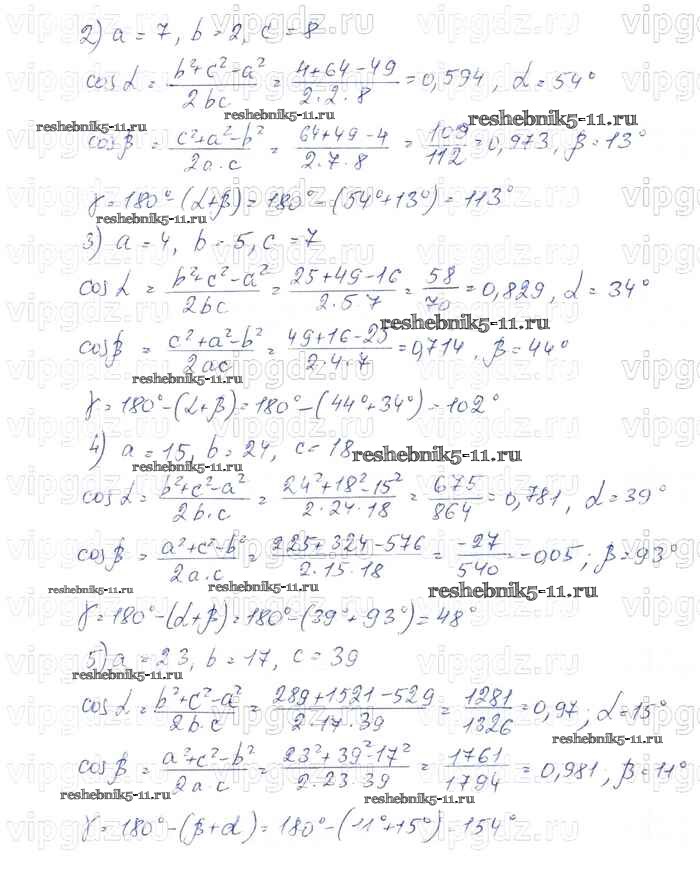 2) a = 7, b = 2, c = 8
cos α = (b²+c²-a²)/(2bc) = (4+64-49)/(2·2·8) = 0,594, α = 54°
reshebnik5-11.ru
reshebnik5-11.ru
cos β = (c²+a²-b²)/(2a·c) = (64+49-4)/(2·7·8) = 109/112 = 0,973, β = 13°
γ = 180° - (α+β) = 180° - (54°+13°) = 113°
reshebnik5-11.ru
3) a = 4, b = 5, c = 7
cos α = (b²+c²-a²)/(2bc) = (25+49-16)/(2·5·7) = 58/70 = 0,829, α = 34°
reshebnik5-11.ru
cos β = (c²+a²-b²)/(2ac) = (49+16-25)/(2·4·7) = 0,714, β = 44°
reshebnik5-11.ru
γ = 180° - (α+β) = 180° - (44°+34°) = 102°
4) a = 15, b = 24, c = 18
reshebnik5-11.ru
reshebnik5-11.ru
cos α = (b²+c²-a²)/(2b·c) = (24²+18²-15²)/(2·24·18) = 675/864 = 0,781, α = 39°
cos β = (a²+c²-b²)/(2a·c) = (225+324-576)/(2·15·18) = -27/540 = -0,05; β = 93°
reshebnik5-11.ru
reshebnik5-11.ru
reshebnik5-11.ru
γ = 180° - (α+β) = 180° - (39°+93°) = 48°
5) a = 23, b = 17, c = 39
reshebnik5-11.ru
cos α = (b²+c²-a²)/(2b·c) = (289+1521-529)/(2·17·39) = 1281/1326 = 0,97; α = 15°
reshebnik5-11.ru
cos β = (a²+c²-b²)/(2a·c) = (23²+39²-17²)/(2·23·39) = 1761/1794 = 0,981; β = 11°
reshebnik5-11.ru
reshebnik5-11.ru
γ = 180° - (β+α) = 180° - (11°+15°) = 154°
vipgdz.ru